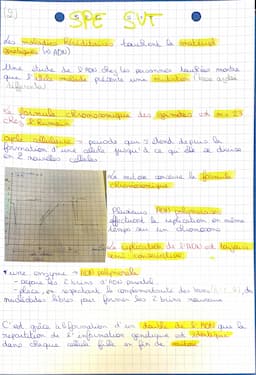 SPE SVT
Les maladies héréditaires touchent le matériel
génétique (→ ADN)
Une étude de l'ADN chez les personnes touchées montre
que cette maladie présente une mutation (base azotée
différente)
La formule chromosomique des gamètes est n = 23
chez l'Homme
Cycle cellulaire = période qui s'étend depuis la
formation d'une cellule jusqu'à ce qu'elle se divise
en 2 nouvelles cellules
La mitose conserve la formule
chromosomique
Plusieurs ADN polymérase
effectuent la réplication en même
temps sur un chromosome
La réplication de l'ADN est
semi conservative
une enzyme = ADN polymérase
- sépare les 2 brins d'ADN
- place, en respectant la complémentarité des bases, des
nucléotides libres pour former les 2 brins nouveaux
C'est grâce à la formation d'un double de l'ADN que la
répartition de l'information génétique est identique
dans chaque cellule fille en fin de mitose